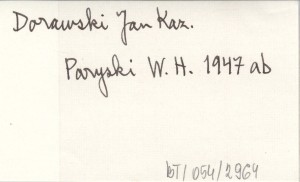 Dorawski Jan Kaz.
Paryski W. H. 1947 ab
bT/054/2964